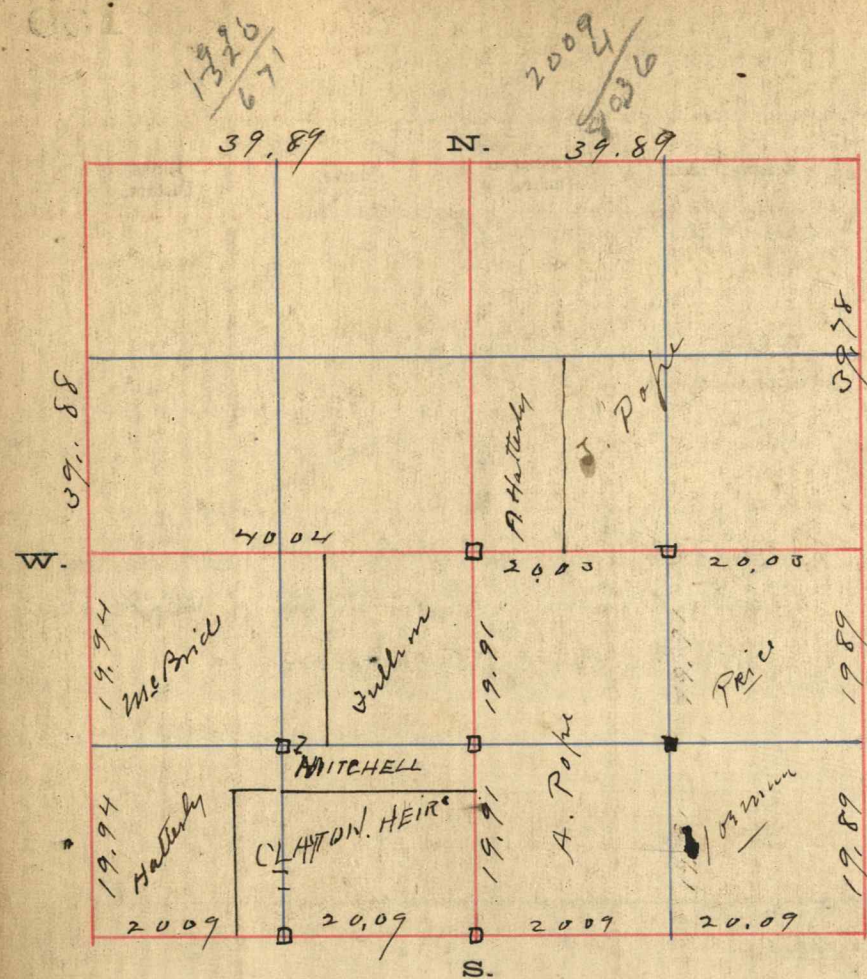 1996
1320
671
2009
4
8036
39.89
N.
39.89
39.88
39.78
A Hatterly
J. Pope
W.
40 04
20.03
20.03
19.94
McBride
19.91
19.91
Price
19 89
MITCHELL
A. Pope
19.94
Hatterly
CLAYTON. HEIRS
19.91
19.89
2009
20,09
2009
20.09
S.